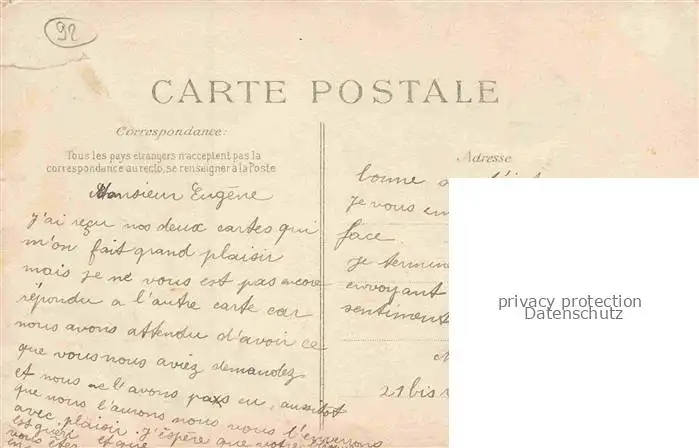 92
CARTE POSTALE
Correspondance:
Tous les pays étrangers n'acceptent pas la
correspondance au recto, se renseigner à la Poste
Adresse
Monsieur Eugène
j'ai reçu nos deux cartes qui
m'on fait grand plaisir
mais je ne vous est pas encore
répondu a l'autre carte car
nous avons attendu d'avoir ce
que vous nous aviez demandez
et nous ne l'avons pas eu, aussitot
que nous l'aurons nous vous l'enverrons
avec plaisir. j'éspère que votre
est guéri
vous et que
bonne
je vous
face.
je termine
envoyant
sentiments
21 bis
privacy protection
Datenschutz